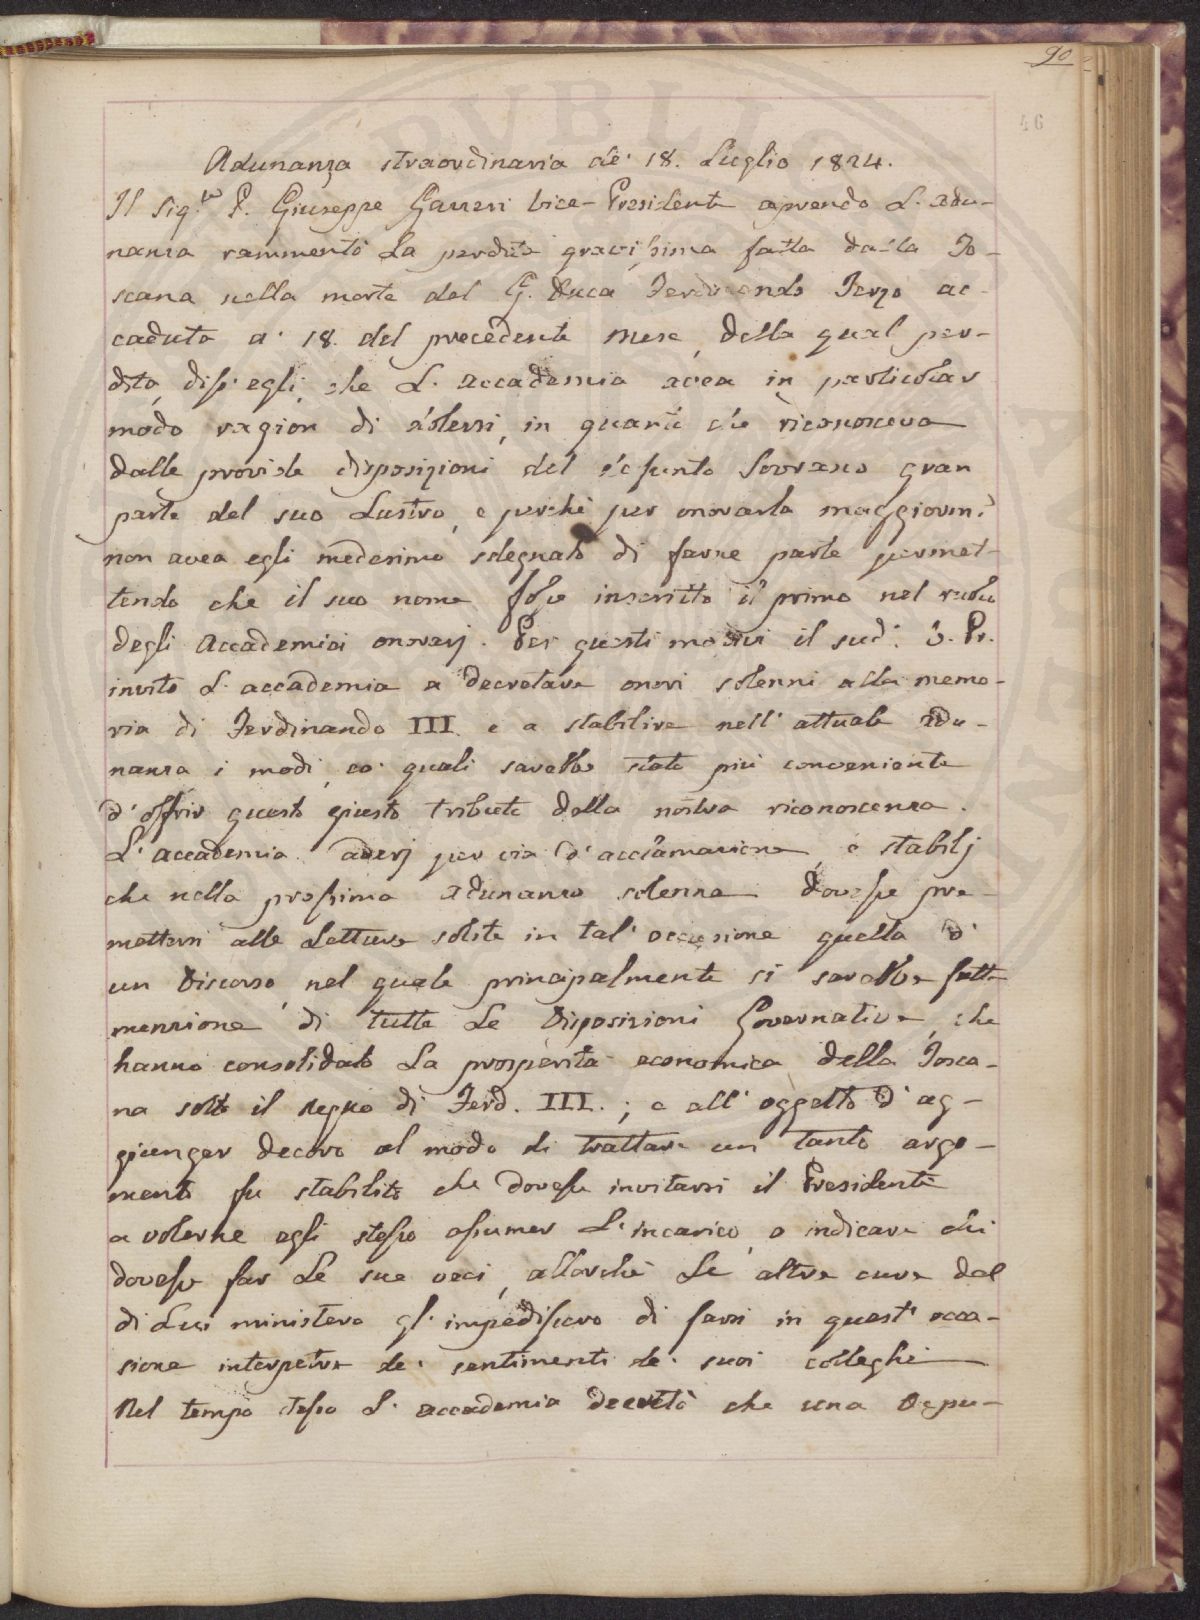 90
46
Adunanza straordinaria de' 18. Luglio 1824.
Il Sig.re P. Giuseppe Gazzeri Vice-Presidente aprendo L'adu-
nanza rammentò La perdita gravissima fatta dalla To-
scana nella morte del G. Duca Ferdinando Terzo ac-
caduta a' 18. del precedente mese, della qual per-
dita, diss' egli, che L'accademia avea in particolar
modo ragion di dolersi, in quanto che riconosceva
dalle provide disposizioni del defunto Sovrano gran
parte del suo Lustro, e perchè per onorarla maggiorm.e
non avea egli medesimo sdegnato di farne parte permet-
tendo che il suo nome fosse inscritto il primo nel ruolo
degli Accademici onorarj. Per questi motivi il sud.o V. Pr.
invitò L'accademia a decretare onori solenni alla memo-
ria di Ferdinando III. e a stabilire nell' attuale adu-
nanza i modi, co' quali sarebbe stato più conveniente
d'offrir questo giusto tributo della nostra riconoscenza.
L'accademia aderj per via d'acclamazione, e stabilj
che nella prossima adunanza solenne dovesse pre-
mettersi alle Letture solite in tal' occasione quella d'
un Discorso, nel quale principalmente si sarebbe fatta
menzione di tutte Le Disposizioni Governative, che
hanno consolidato La prosperità economica della Tosca-
na sotto il regno di Ferd. III.; e all' oggetto d'ag-
giunger decoro al modo di trattare un tanto argo-
mento fu stabilito che dovesse invitarsi il Presidente
a volerne egli stesso assumer L'incarico, o indicare chi
dovesse far Le sue veci, allorchè Le altre cure del
di Lui ministero gl' impedissero di farsi in quest' occa-
sione interpetre de' sentimenti de' suoi colleghi
Nel tempo stesso L'accademia decretò che una Depu-